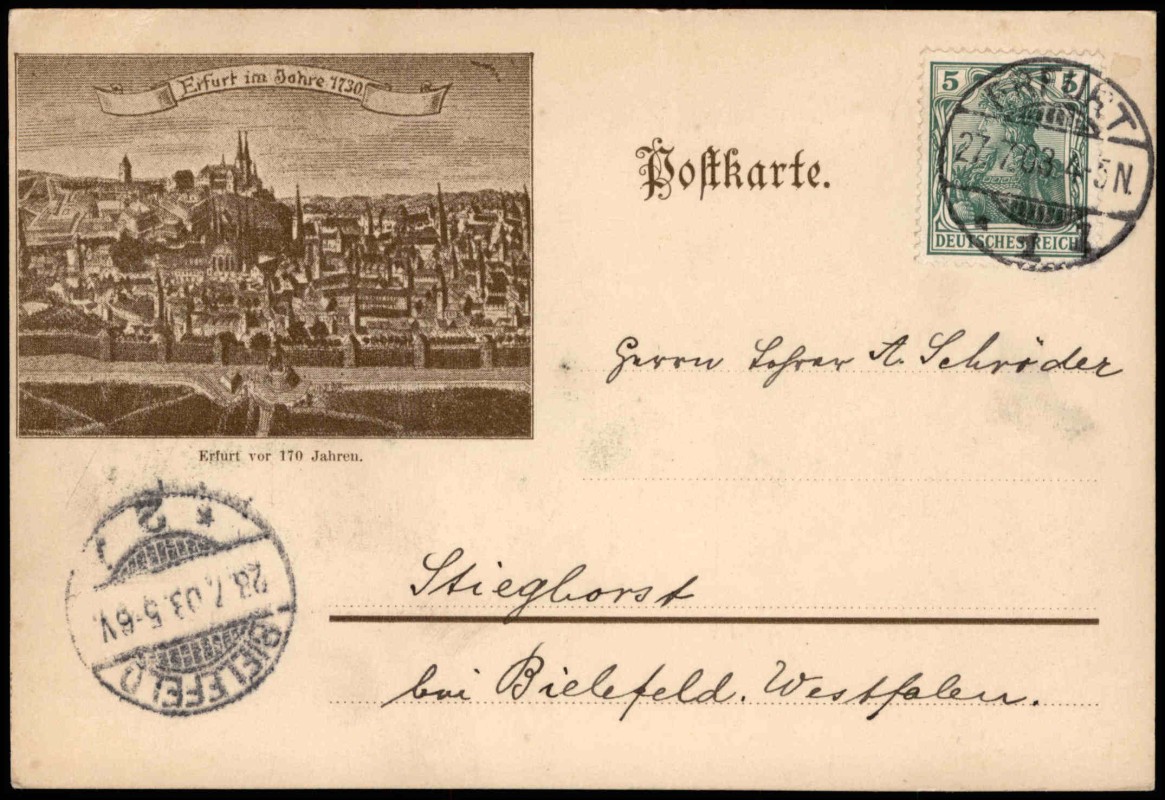 Erfurt im Jahre 1730
Erfurt vor 170 Jahren.
Postkarte.
5 5
DEUTSCHES REICH
ERFURT
27.7.03. 4-5N.
* 1
Herrn Lehrer A. Schröder
Stieghorst
bei Bielefeld. Westfalen.
BIELEFELD
28.7.03. 5-6V.
* 2